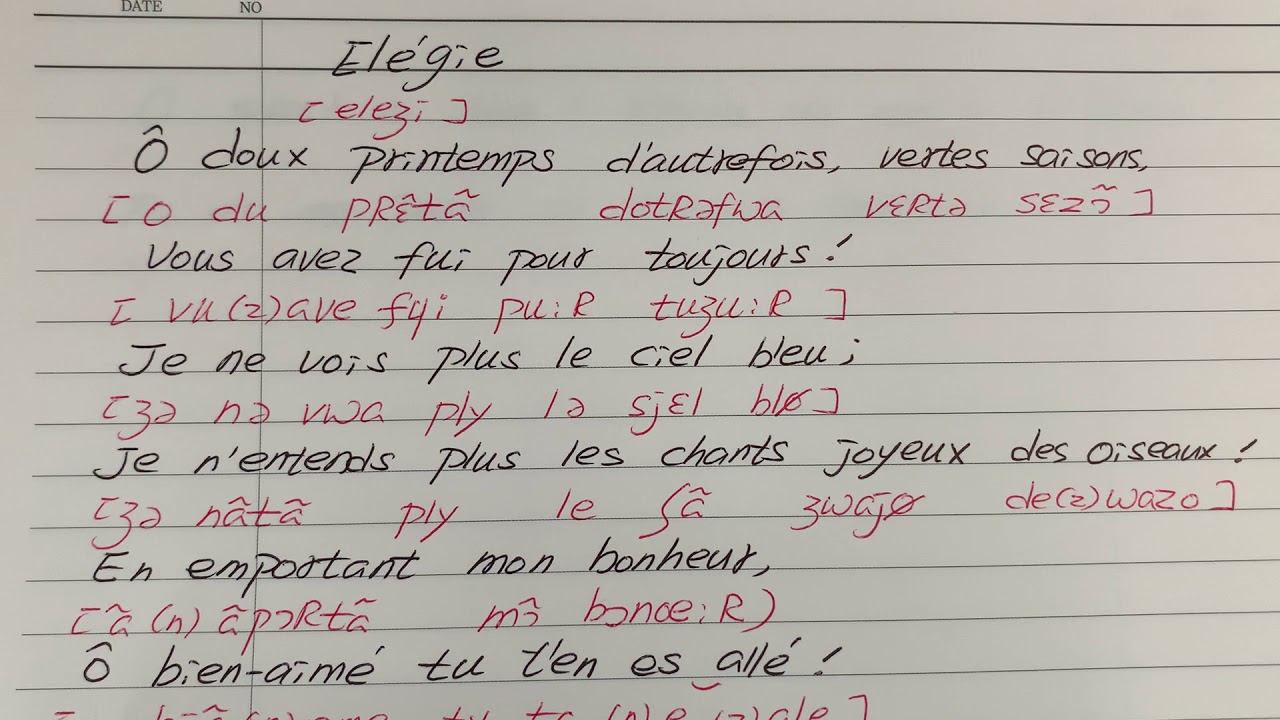 DATE NO
Elégie
[eleʒi]
Ô doux printemps d'autrefois, vertes saisons,
[o du pRɛ̃tɑ̃ dotRəfwa vɛRtə sɛzɔ̃]
Vous avez fui pour toujours!
[vu(z)ave fɥi pu:R tuʒu:R]
Je ne vois plus le ciel bleu;
[ʒə nə vwa ply lə sjɛl blø]
Je n'entends plus les chants joyeux des oiseaux!
[ʒə nɑ̃tɑ̃ ply le ʃɑ̃ ʒwajø de(z)wazo]
En emportant mon bonheur,
[ɑ̃(n) ɑ̃pɔRtɑ̃ mɔ̃ bɔnœ:R)
Ô bien-aimé tu t'en es allé!